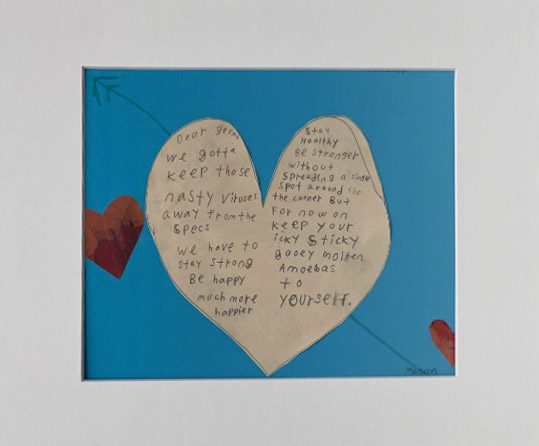 Dear germs
we gotta
keep those
nasty viruses
away from the
specs
we have to
stay strong
Be happy
much more
happier
Stay
Healthy
Be stronger
without
spreading a
spot around
the corner But
For now on
keep your
icky sticky
gooey molten
Amoebas
to
yourself.